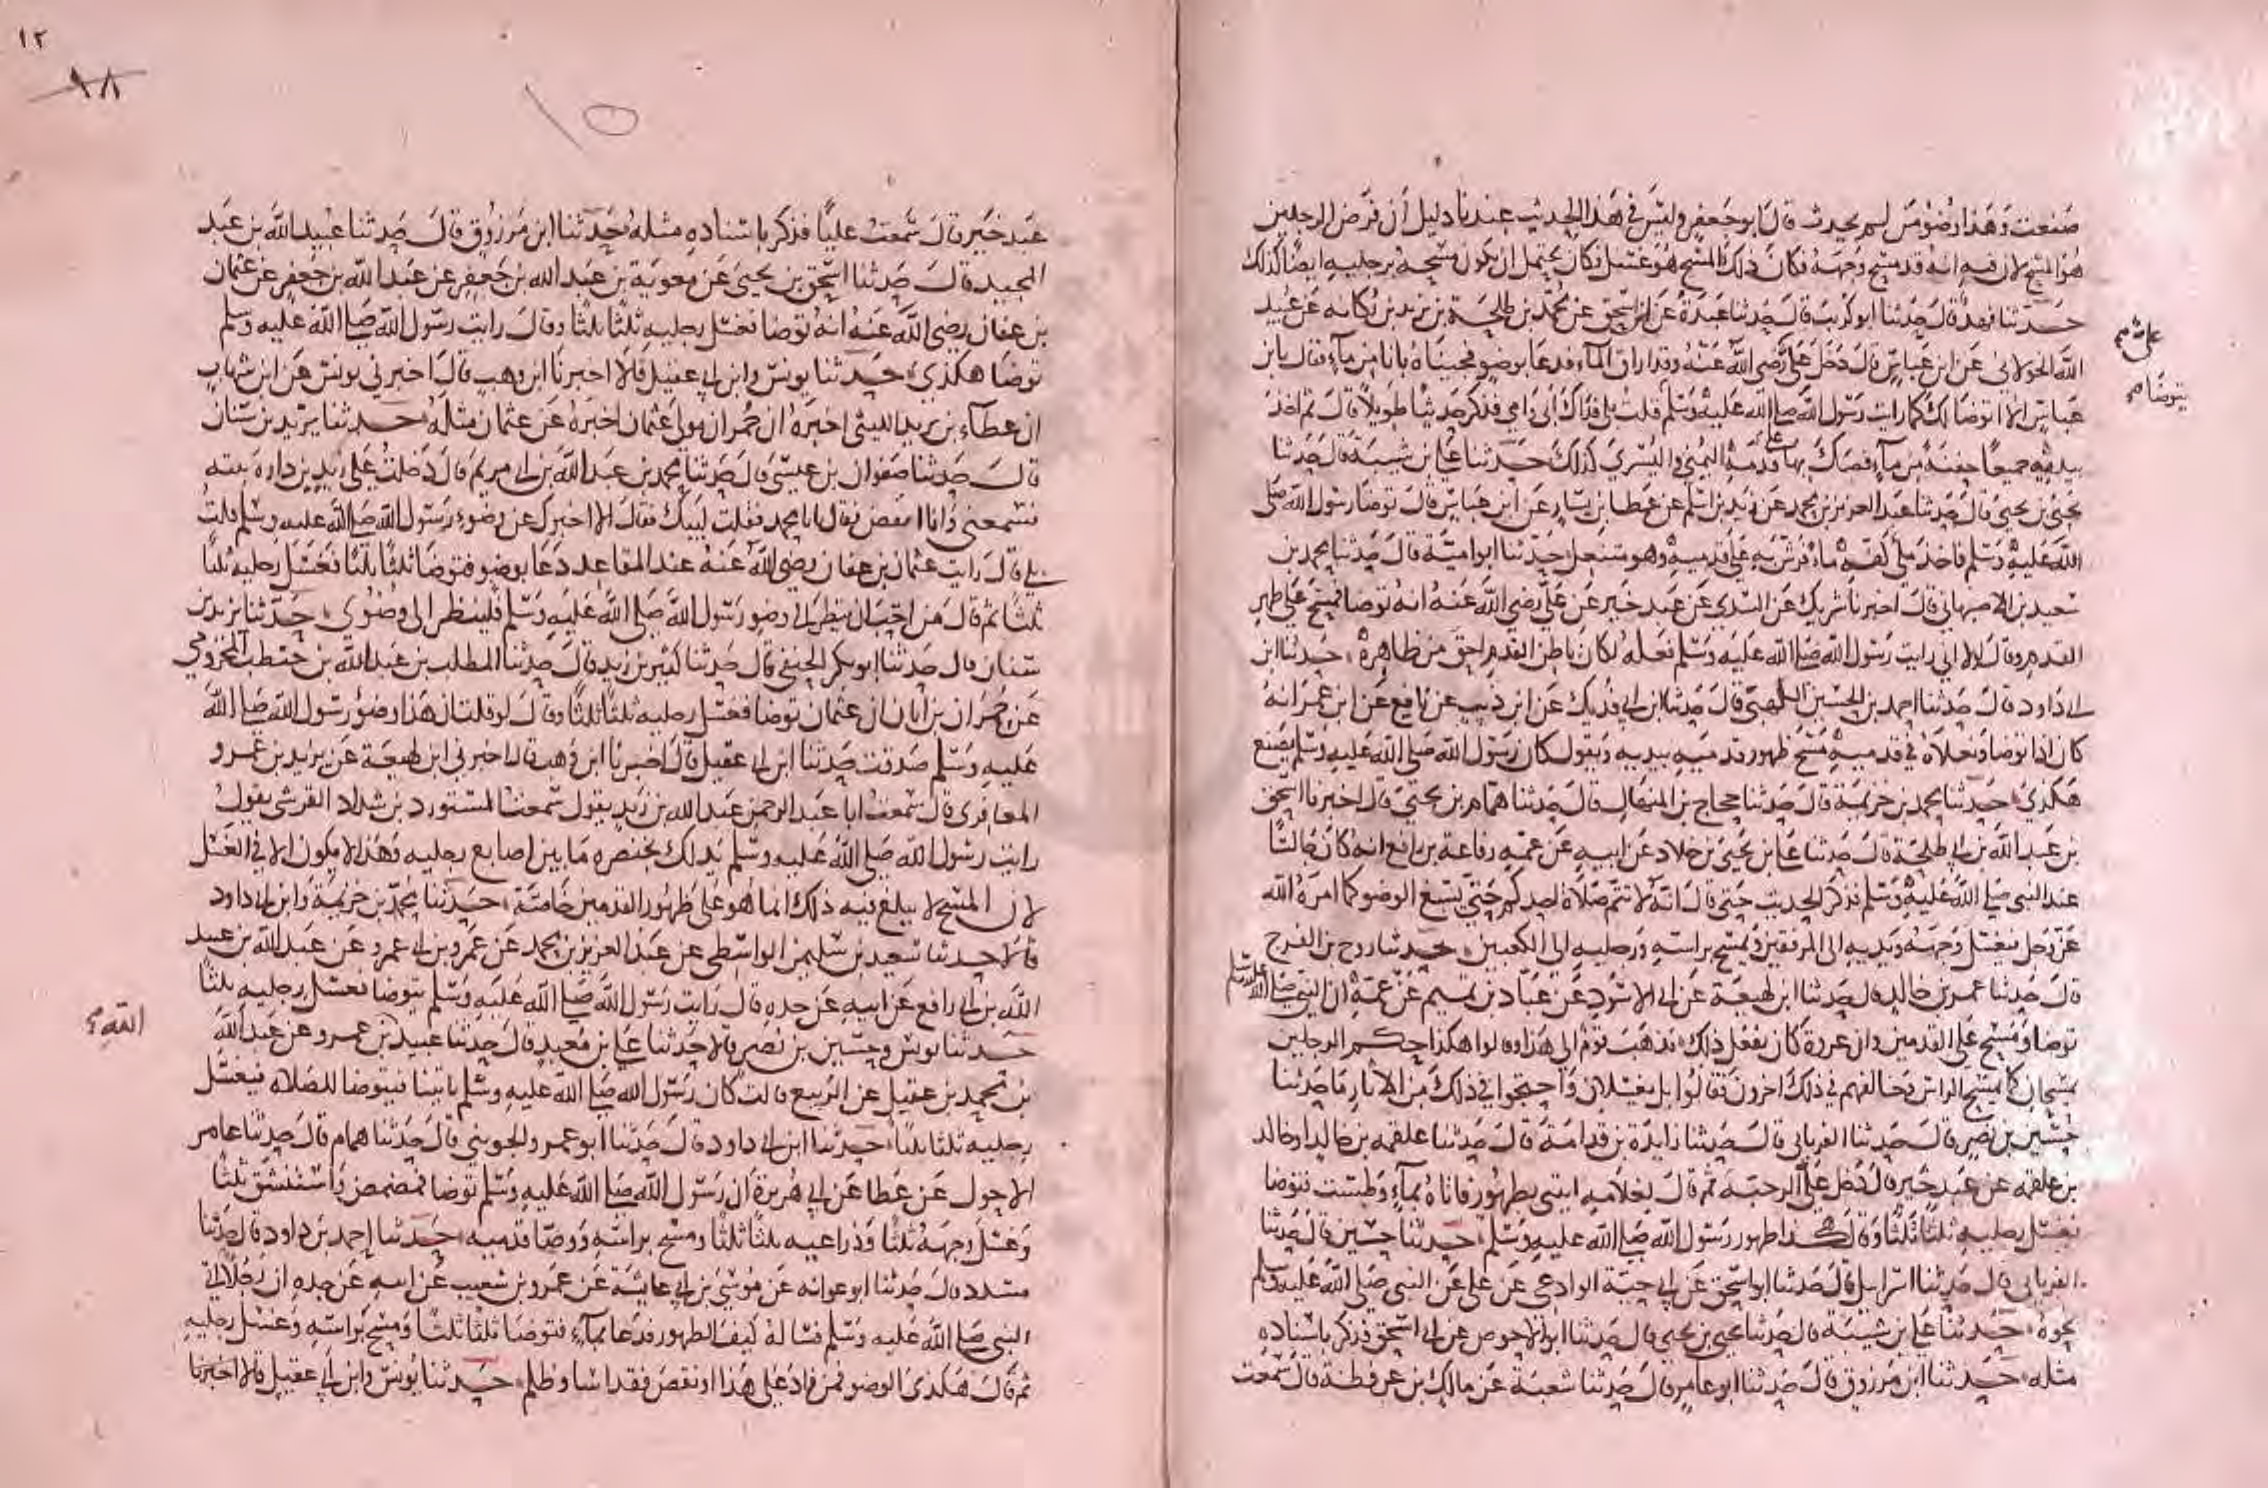 صنعت وهذا وضؤ من لم يحدث قال ابو جعفر وليس في هذا الحديث عندنا دليل ان فرض الرجلين
هو المسح لان فيه انه قد مسح وجهه فكان ذلك المسح هو غسل فكان يحتمل ان يكون مسحه برجليه ايضا كذلك
حدثنا فهد قال حدثنا ابو كريب قال حدثنا عبدة عن ابن اسحق عن محمد بن طلحة بن يزيد بن ركانه عن عبيد
الله الخولاني عن ابن عباس قال دخل علي رضي الله عنه وقد اراق الماء فدعا بوضو فجيناه بانا من ماء فقال يا بن
عباس الا اتوضا لك كما رايت رسول الله صلى الله عليه وسلم قلت بلى فداك ابي وامي فذكر حديثا طويلا قال ثم اخذ
بيديه جميعا حفنة من ماء فصك بها على قدمه اليمنى واليسرى كذلك حدثنا علي بن شيبة قال حدثنا
يحيى بن يحيى قال حدثنا عبد العزيز بن محمد عن زيد بن اسلم عن عطا بن يسار عن ابن عباس قال توضا رسول الله صلى
الله عليه وسلم فاخذ ملى كفه ماء فرش به على قدميه وهو متنعل حدثنا ابو امية قال حدثنا محمد بن
سعيد بن الاصبهاني قال اخبرنا شريك عن السدي عن عبد خير عن علي رضي الله عنه انه توضا فمسح على ظهر
القدم وقال لولا اني رايت رسول الله صلى الله عليه وسلم فعله لكان باطن القدم احق من ظاهره حدثنا ابن
ابي داود قال حدثنا احمد بن الحسين اللهبي قال حدثنا ابن ابي فديك عن ابن ذيب عن نافع عن ابن عمر انه
كان اذا توضا ونعلاه في قدميه مسح ظهور قدميه بيديه ويقول كان رسول الله صلى الله عليه وسلم يصنع
هكذى حدثنا محمد بن خزيمة قال حدثنا حجاج بن المنهال قال حدثنا همام بن يحيى قال اخبرنا اسحق
بن عبد الله بن ابي طلحة قال حدثنا علي بن يحيى بن خلاد عن ابيه عن عمه رفاعة بن رافع انه كان جالسا
عند النبي صلى الله عليه وسلم فذكر الحديث حتى قال انه لا تتم صلاة احدكم حتى يسبغ الوضو كما امره الله
عز وجل فيغسل وجهه ويديه الى المرفقين ويمسح براسه ورجليه الى الكعبين حدثنا روح بن الفرج
قال حدثنا عمرو بن خالد قال حدثنا ابن لهيعة عن ابي الاسود عن عباد بن تميم عن عمه ان النبي صلى الله عليه وسلم
توضا ومسح على القدمين وان عروة كان يفعل ذلك فذهب قوم الى هذا وقالوا هكذا حكم الرجلين
يمسحان كما يمسح الراس وخالفهم في ذلك اخرون فقالوا بل يغسلان واحتجوا في ذلك من الاثار ما حدثنا
حسين بن نصر قال حدثنا الفريابي قال حدثنا زايدة بن قدامة قال حدثنا علقمه بن خالد او خالد
بن علقمه عن عبد خير قال دخل علي الرحبة ثم قال لغلامه ايتني بطهور فاتاه بماء وطست فتوضا
فغسل رجليه ثلثا ثلثا وقال هكذا طهور رسول الله صلى الله عليه وسلم حدثنا حسين قال حدثنا
الفريابي قال حدثنا اسرايل قال حدثنا ابو اسحق عن ابي حية الوادعي عن علي عن النبي صلى الله عليه وسلم
نحوه حدثنا علي بن شيبة قال حدثنا يحيى بن يحيى قال حدثنا ابو الاحوص عن ابي اسحق فذكر باسناده
مثله حدثنا ابن مرزوق قال حدثنا ابو عامر قال حدثنا شعبة عن مالك بن عرفطة قال سمعت
يتوضا
١٢
١٨
١٥
عبد خير قال سمعت عليا فذكر باسناده مثله حدثنا ابن مرزوق قال حدثنا عبيد الله بن عبد
المجيد قال حدثنا اسحق بن يحيى عن معوية بن عبد الله بن جعفر عن عبد الله بن جعفر عن عثمان
بن عفان رضي الله عنه انه توضا فغسل رجليه ثلثا ثلثا وقال رايت رسول الله صلى الله عليه وسلم
توضا هكذى حدثنا يونس وابن ابي عقيل قالا اخبرنا ابن وهب قال اخبرني يونس عن ابن شهاب
ان عطاء بن يزيد الليثي اخبره ان حمران مولى عثمان اخبره عن عثمان مثله حدثنا يزيد بن سنان
قال حدثنا صفوان بن عيسى قال حدثنا محمد بن عبد الله بن ابي مريم قال دخلت على زيد بن دارة بيته
فسمعني وانا امضمض فقال يا با محمد فقلت لبيك فقال الا اخبرك عن وضوء رسول الله صلى الله عليه وسلم قلت
بلى قال رايت عثمان بن عفان رضي الله عنه عند المقاعد دعا بوضو فتوضا ثلثا ثلثا فغسل رجليه ثلثا
ثلثا ثم قال من احب ان ينظر الى وضو رسول الله صلى الله عليه وسلم فلينظر الى وضوى حدثنا يزيد بن
سنان قال حدثنا ابو بكر الحنفي قال حدثنا كثير بن زيد قال حدثنا المطلب بن عبد الله بن حنطب المخزومي
عن حمران بن ابان ان عثمان توضا فغسل رجليه ثلثا ثلثا وقال لو قلت ان هذا وضؤ رسول الله صلى الله
عليه وسلم صدقت حدثنا ابن ابي عقيل قال اخبرنا ابن وهب قال اخبرني ابن لهيعة عن يزيد بن عمرو
المعافري قال سمعت ابا عبد الرحمن عبد الله بن زيد يقول سمعت المستورد بن شداد القرشي يقول
رايت رسول الله صلى الله عليه وسلم يدلك بخنصره ما بين اصابع رجليه وهذا لا يكون الا في الغسل
لان المسح لا يبلغ فيه ذلك انما هو على ظهور القدمين خاصة حدثنا محمد بن خزيمة وابن ابي داود
قالا حدثنا سعيد بن سليمن الواسطي عن عبد العزيز بن محمد عن عمرو بن ابي عمرو عن عبد الله بن عبيد
الله بن ابي رافع عن ابيه عن جده قال رايت رسول الله صلى الله عليه وسلم يتوضا فغسل رجليه ثلثا
حدثنا يونس وحسين بن نصر قالا حدثنا علي بن معبد قال حدثنا عبيد بن عمرو عن عبد الله
الله
بن محمد بن عقيل عن الربيع قالت كان رسول الله صلى الله عليه وسلم ياتينا فيتوضا للصلاه فيغسل
رجليه ثلثا ثلثا حدثنا ابن ابي داود قال حدثنا ابو عمرو الحوضي قال حدثنا همام قال حدثنا عامر
الاحول عن عطا عن ابي هريرة ان رسول الله صلى الله عليه وسلم توضا فمضمض واستنشق ثلثا
وغسل وجهه ثلثا وذراعيه ثلثا ثلثا ومسح براسه ووضا قدميه حدثنا احمد بن داود قال حدثنا
مسدد قال حدثنا ابو عوانه عن موسى بن ابي عايشة عن عمرو بن شعيب عن ابيه عن جده ان رجلا اتى
النبي صلى الله عليه وسلم فساله كيف الطهور فدعا بماء فتوضا ثلثا ثلثا ومسح براسه وغسل رجليه
ثم قال هكذى الوضو فمن زاد على هذا او نقص فقد اسا وظلم حدثنا يونس وابن ابي عقيل قالا اخبرنا